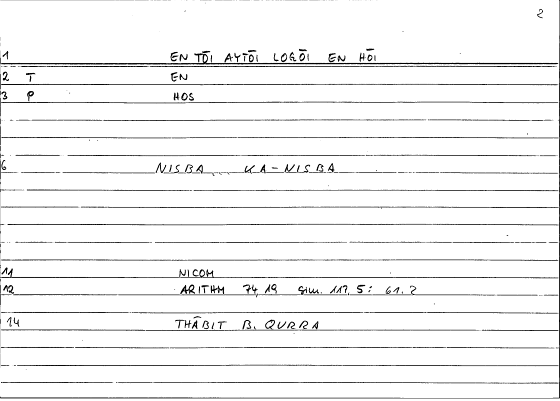 2
1 EN TŌI AYTŌI LOGŌI EN HŌI
2 T EN
3 P HOS
6 NISBA ... KA-NISBA
11 NICOM
12 ARITHM 74,19 sim. 117,5: 61.2
14 THĀBIT B. QURRA